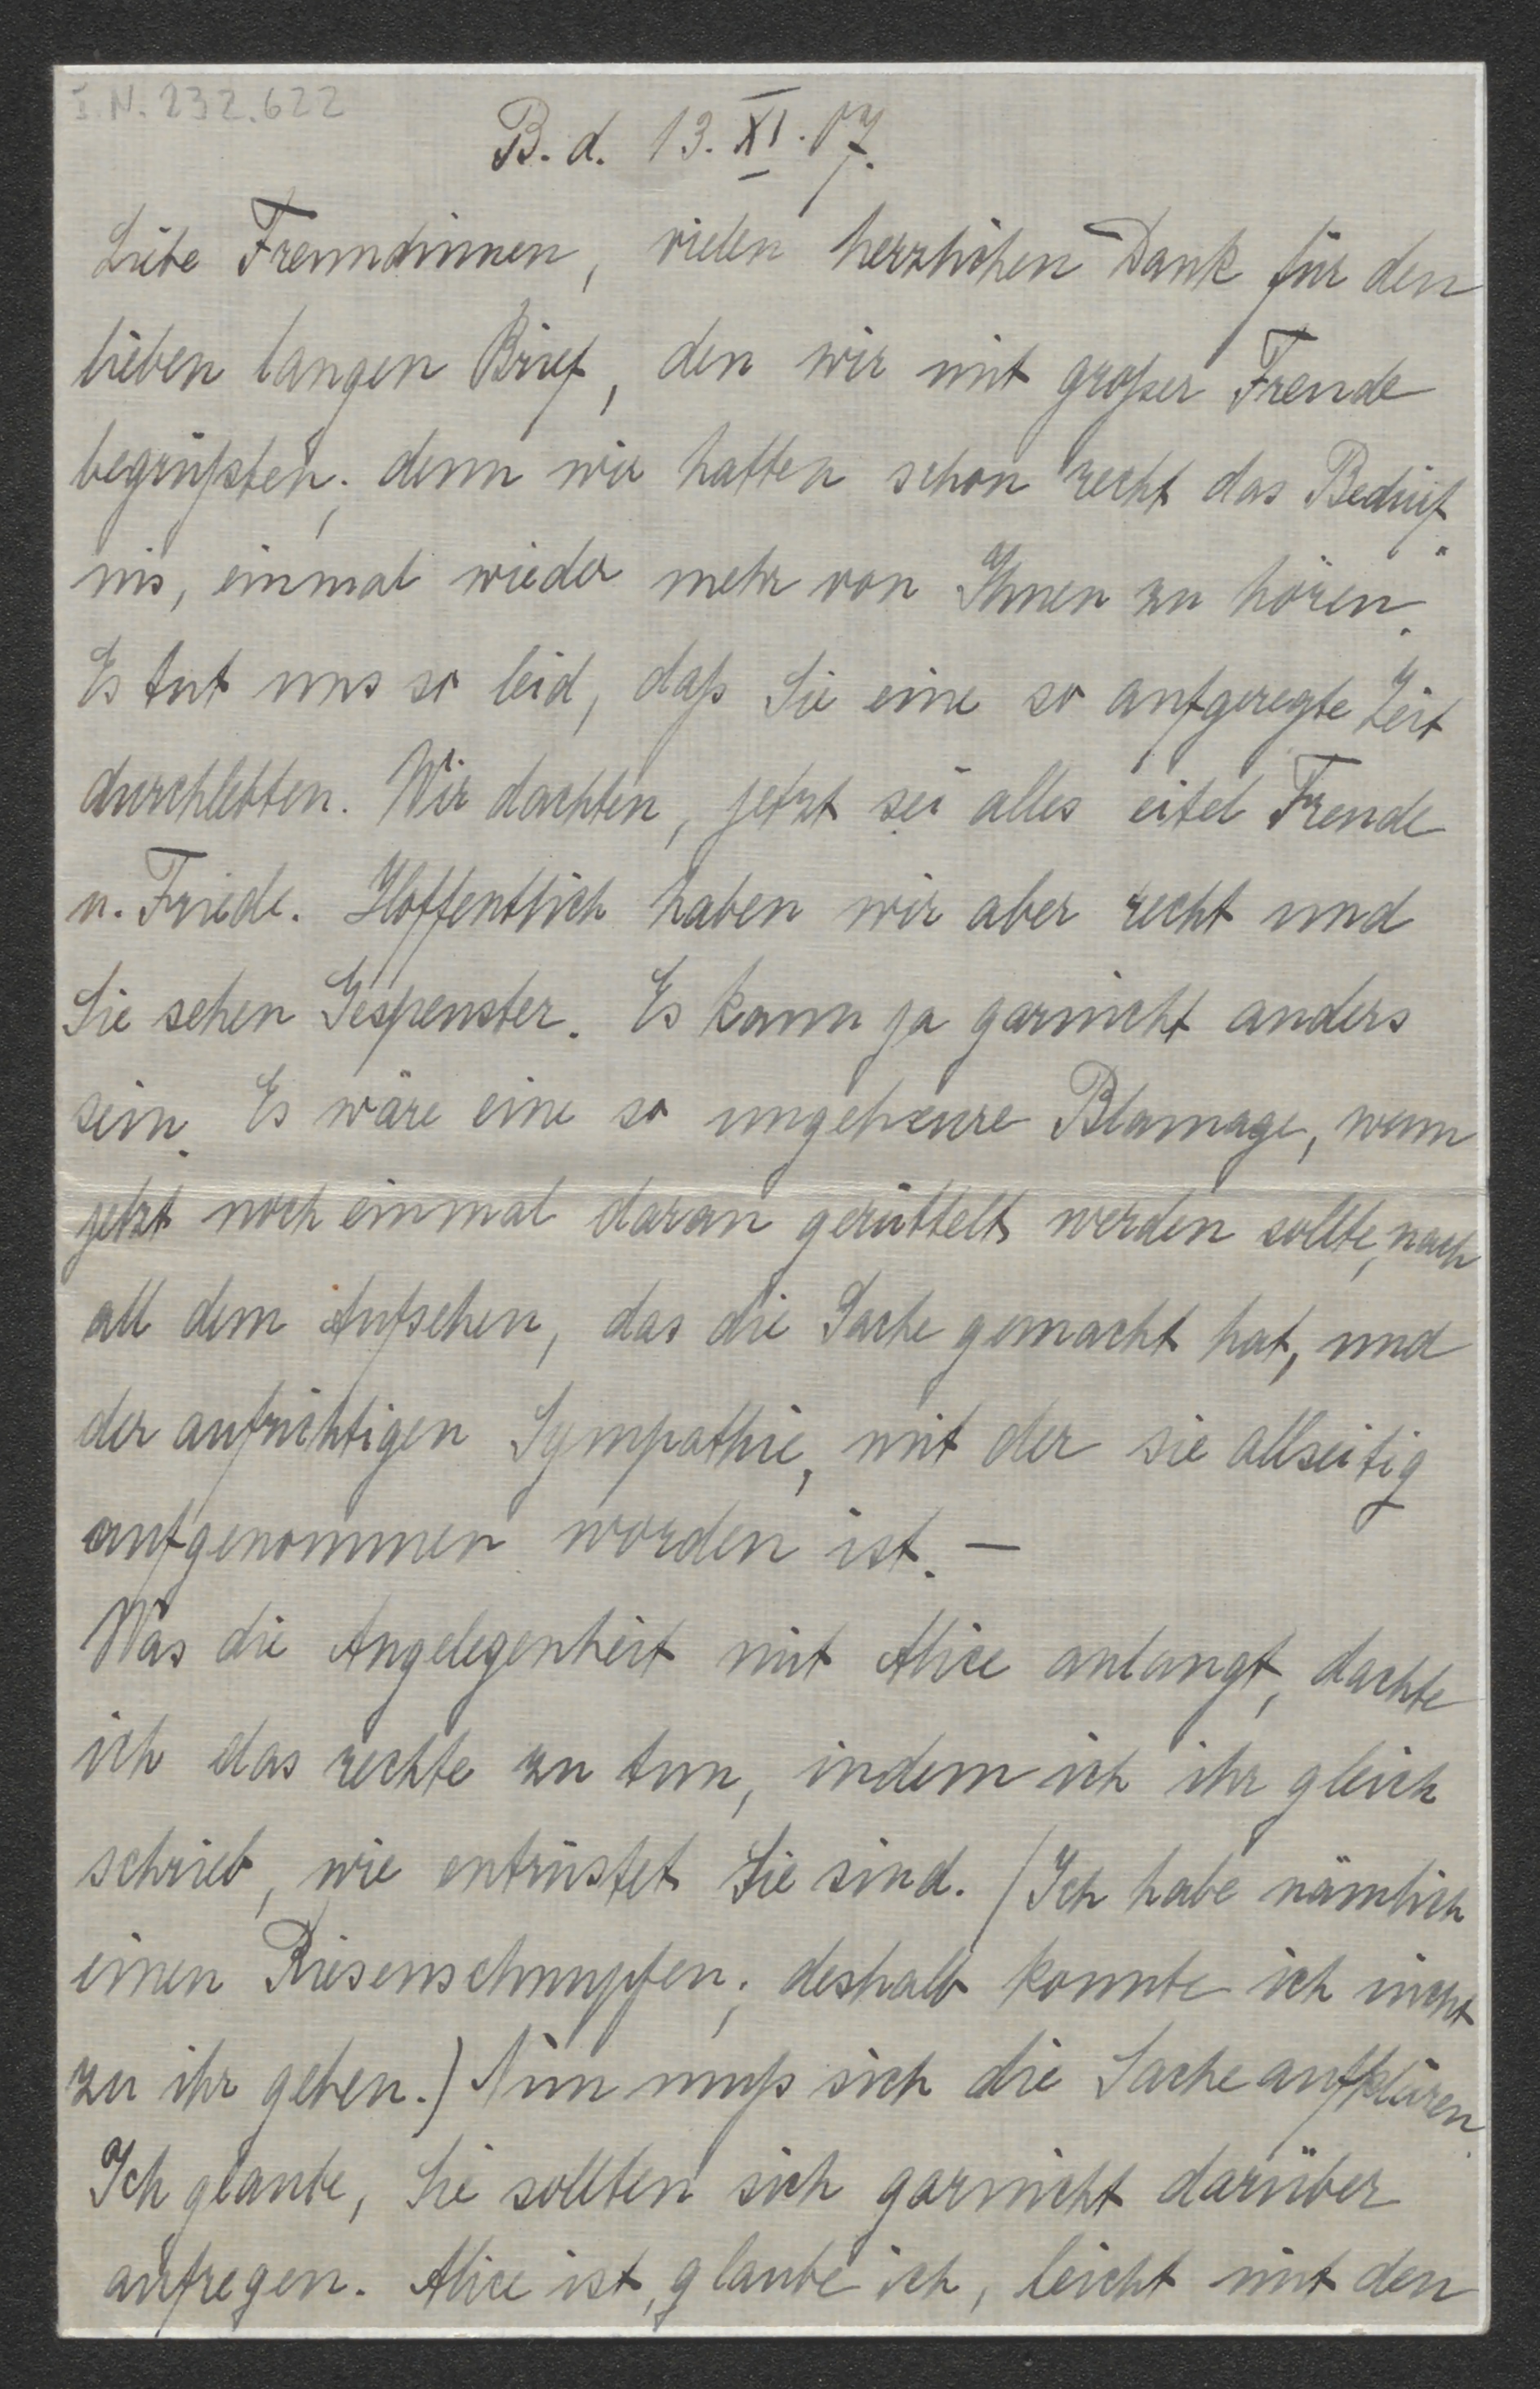 I.N. 232.622
B. d. 13. XI. 07.
Liebe Freundinnen, vielen herzlichen Dank für den
lieben langen Brief, den wir mit großer Freude
begrüßten; denn wir hatten schon recht das Bedürf-
nis, einmal wieder mehr von Ihnen zu hören.
Es tut uns so leid, daß Sie eine so aufgeregte Zeit
durchlebten. Wir dachten, jetzt sei alles eitel Freude
u. Friede. Hoffentlich haben wir aber recht und
Sie sehen Gespenster. Es kann ja garnicht anders
sein. Es wäre eine so ungeheure Blamage, wenn
jetzt noch einmal daran gerüttelt werden sollte, nach
all dem Aufsehen, das die Sache gemacht hat, und
der aufrichtigen Sympathie, mit der sie allseitig
aufgenommen worden ist. —
Was die Angelegenheit mit Alice anlangt, dachte
ich das rechte zu tun, indem ich ihr gleich
schrieb, wie entrüstet Sie sind. (Ich habe nämlich
einen Riesenschnupfen; deshalb konnte ich nicht
zu ihr gehen.) Nun muß sich die Sache aufklären.
Ich glaube, Sie sollten sich garnicht darüber
aufregen. Alice ist, glaube ich, leicht mit den